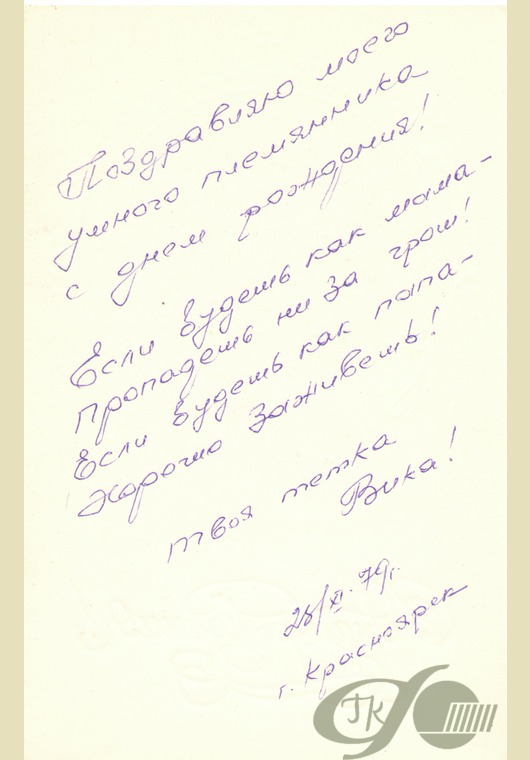 Поздравляю моего
умного племянника
с днем рождения!
Если будешь как мама-
пропадешь ни за грош!
Если будешь как папа-
Хорошо заживешь!
твоя тетка
Вика!
28/XI. 79г.
г. Красноярск
ГК